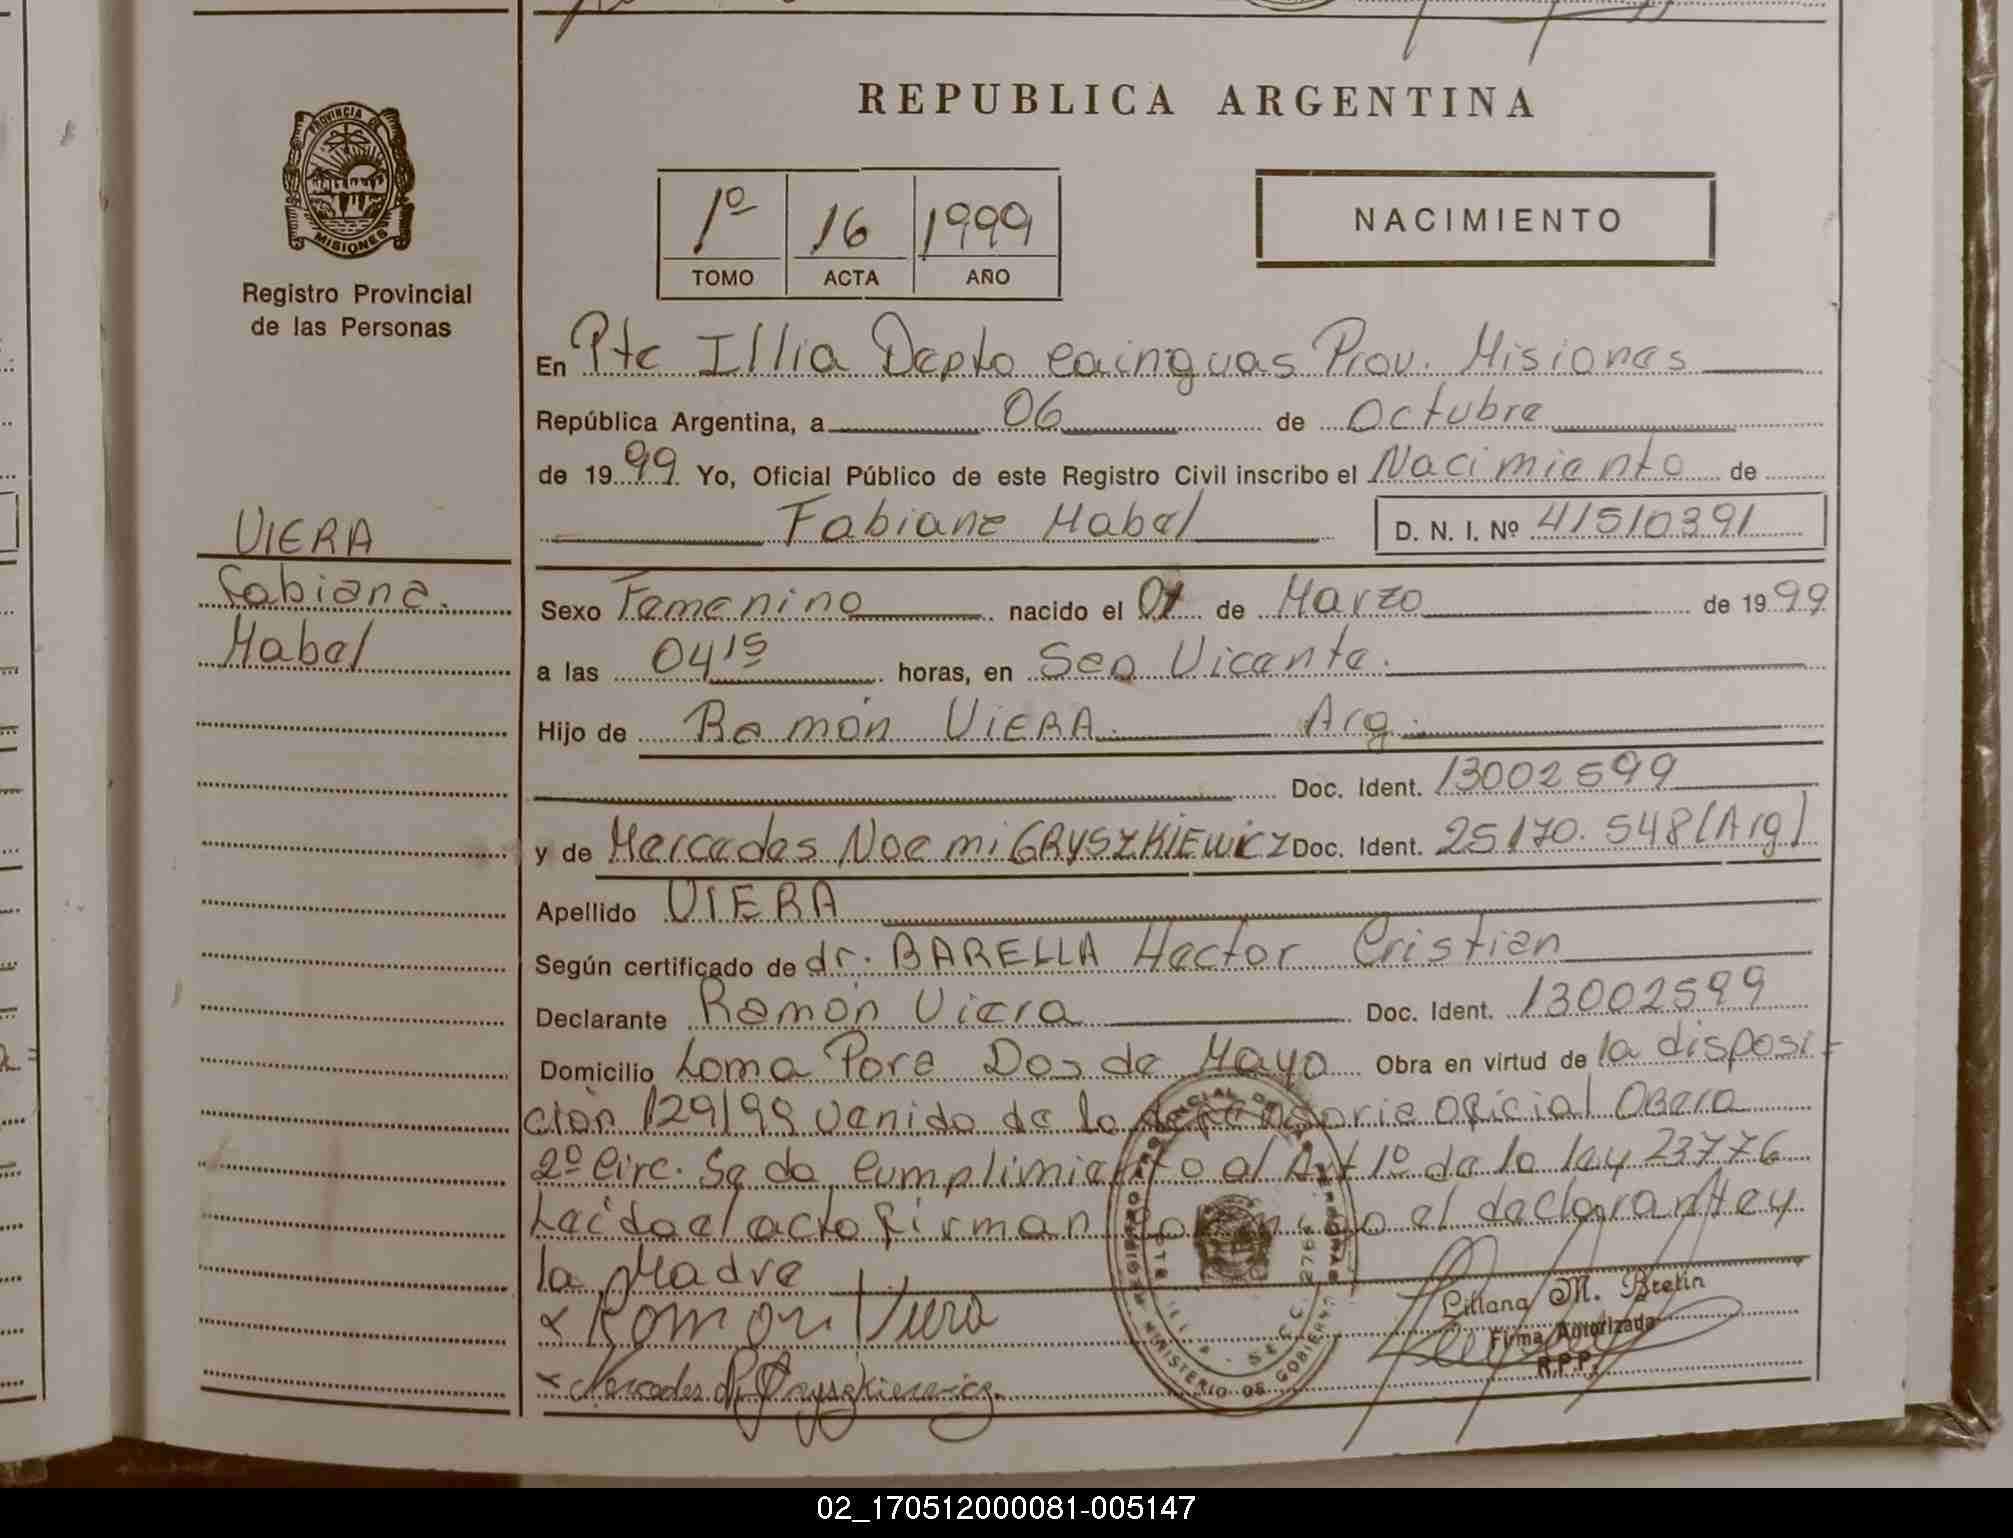 REPUBLICA ARGENTINA
PROVINCIA DE
MISIONES
Registro Provincial
de las Personas
1º 16 1999
TOMO ACTA AÑO
NACIMIENTO
En Pte Illia Depto Cainguas Prov. Misiones
República Argentina, a 06 de Octubre
de 1999 Yo, Oficial Público de este Registro Civil inscribo el Nacimiento de
Fabiana Mabel D. N. I. Nº 41510391
VIERA
Fabiana
Mabel
Sexo Femenino nacido el 01 de Marzo de 1999
a las 04 15 horas, en Sen Vicente.
Hijo de Ramón VIERA Arg.
Doc. Ident. 13002599
y de Mercedes Noemi GRYSZKIEWICZ Doc. Ident. 25170.548 (Arg)
Apellido VIERA
Según certificado de dr. BARELLA Hector Cristian
Declarante Ramón Viera Doc. Ident. 13002599
Domicilio Loma Pora Dos de Mayo Obra en virtud de la disposi-
ción 129/99 venido de la defensoria oficial Obera
2º Circ. Se da Cumplimiento al Art 1º de la ley 23776
Leido el acto firman conmigo el declarante y
la Madre
x Ramon Viera
x Mercedes N. Gryszkiewicz.
Liliana M. Bretin
Firma Autorizada
R.P.P.
02_170512000081-005147